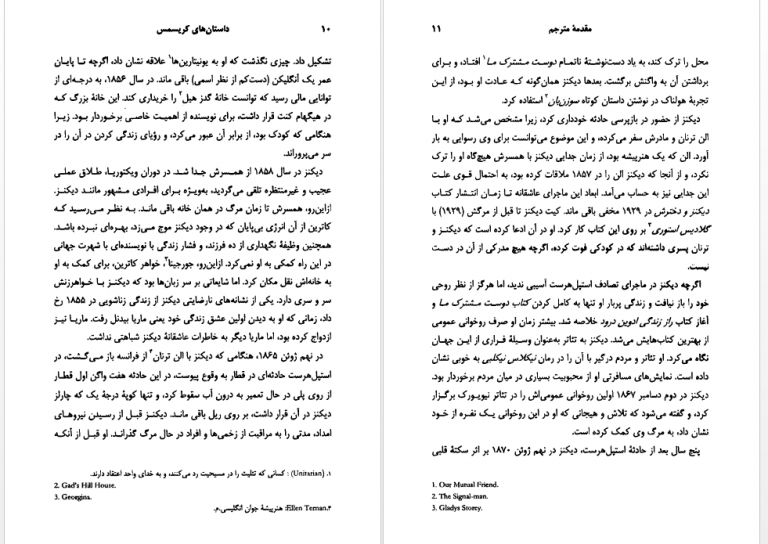 ۱۰ داستان‌های کریسمس
تشکیل داد. چیزی نگذشت که او به یونیتارین‌ها۱ علاقه نشان داد، اگرچه تا پایان
عمر یک آنگلیکن (دست‌کم از نظر اسمی) باقی ماند. در سال ۱۸۵۶، به درجه‌ای از
توانایی مالی رسید که توانست خانهٔ گدز هیل۲ را خریداری کند. این خانهٔ بزرگ که
در هیگهام کنت قرار داشت، برای نویسنده از اهمیت خاصی برخوردار بود. زیرا
هنگامی که کودک بود، از برابر آن عبور می‌کرد، و رؤیای زندگی کردن در آن را در
سر می‌پروراند.
دیکنز در سال ۱۸۵۸ از همسرش جدا شد. در دوران ویکتوریا، طلاق عملی
عجیب و غیرمنتظره تلقی می‌گردید، به‌ویژه برای افرادی مشهور مانند دیکنز.
ازاین‌رو، همسرش تا زمان مرگ در همان خانه باقی ماند. به نظر می‌رسید که
کاترین از آن انرژی بی‌پایان که در وجود دیکنز موج می‌زد، بهره‌ای نبرده باشد.
همچنین وظیفهٔ نگهداری از ده فرزند، و فشار زندگی با نویسنده‌ای با شهرت جهانی
در این راه کمکی به او نمی‌کرد. ازاین‌رو، جورجینا۳، خواهر کاترین، برای کمک به او
به خانه‌اش نقل مکان کرد. اما شایعاتی بر سر زبان‌ها بود که دیکنز با خواهرزنش
سر و سری دارد. یکی از نشانه‌های نارضایتی دیکنز از زندگی زناشویی در ۱۸۵۵ رخ
داد، زمانی که او به دیدن اولین عشق زندگی خود یعنی ماریا بیدنل رفت. ماریا نیز
ازدواج کرده بود، اما ماریا دیگر به خاطرات عاشقانهٔ دیکنز شباهتی نداشت.
در نهم ژوئن ۱۸۶۵، هنگامی که دیکنز با الن ترنان۴ از فرانسه باز می‌گشت، در
استپل‌هرست حادثه‌ای در قطار به وقوع پیوست. در این حادثه هفت واگن اول قطار
از روی پلی در حال تعمیر به درون آب سقوط کرد، و تنها کوپهٔ درجهٔ یک که چارلز
دیکنز در آن قرار داشت، بر روی ریل باقی ماند. دیکنز قبل از رسیدن نیروهای
امداد، مدتی را به مراقبت از زخمی‌ها و افراد در حال مرگ گذراند. او قبل از آنکه
۱. (Unitarian) : کسانی که تثلیث را در مسیحیت رد می‌کنند، و به خدای واحد اعتقاد دارند.
2. Gad's Hill House.
3. Georgina.
۴.Ellen Ternan: هنرپیشهٔ جوان انگلیسی.م.
مقدمهٔ مترجم ۱۱
محل را ترک کند، به یاد دست‌نوشتهٔ ناتمام دوست مشترک ما۱ افتاد، و برای
برداشتن آن به واگنش برگشت. بعدها دیکنز همان‌گونه که عادت او بود، از این
تجربهٔ هولناک در نوشتن داستان کوتاه سوزن‌بان۲ استفاده کرد.
دیکنز از حضور در بازپرسی حادثه خودداری کرد، زیرا مشخص می‌شد که او با
الن ترنان و مادرش سفر می‌کرده، و این موضوع می‌توانست برای وی رسوایی به بار
آورد. الن که یک هنرپیشه بود، از زمان جدایی دیکنز با همسرش هیچ‌گاه او را ترک
نکرد، و از آنجا که دیکنز الن را در ۱۸۵۷ ملاقات کرده بود، به احتمال قوی علت
این جدایی نیز به حساب می‌آمد. ابعاد این ماجرای عاشقانه تا زمان انتشار کتاب
دیکنز و دخترش در ۱۹۳۹ مخفی باقی ماند. کیت دیکنز تا قبل از مرگش (۱۹۲۹) با
گلادیس استوری۳ بر روی این کتاب کار کرد. او در آن ادعا کرده است که دیکنز و
ترنان پسری داشته‌اند که در کودکی فوت کرده، اگرچه هیچ مدرکی از آن در دست
نیست.
اگرچه دیکنز در ماجرای تصادف استپل‌هرست آسیبی ندید، اما هرگز از نظر روحی
خود را باز نیافت و زندگی پربار او تنها به کامل کردن کتاب دوست مشترک ما و
آغاز کتاب راز زندگی ادوین درود خلاصه شد. بیشتر زمان او صرف روخوانی عمومی
از بهترین کتاب‌هایش می‌شد. دیکنز به تئاتر به‌عنوان وسیلهٔ فراری از این جهان
نگاه می‌کرد. او تئاتر و مردم درگیر با آن را در رمان نیکلاس نیکلبی به خوبی نشان
داده است. نمایش‌های مسافرتی او از محبوبیت بسیاری در میان مردم برخوردار بود.
دیکنز در دوم دسامبر ۱۸۶۷ اولین روخوانی عمومی‌اش را در تئاتر نیویورک برگزار
کرد، و گفته می‌شود که تلاش و هیجانی که او در این روخوانی یک نفره از خود
نشان داد، به مرگ وی کمک کرده است.
پنج سال بعد از حادثهٔ استپل‌هرست، دیکنز در نهم ژوئن ۱۸۷۰ بر اثر سکتهٔ قلبی
1. Our Mutual Friend.
2. The Signal-man.
3. Gladys Storey.